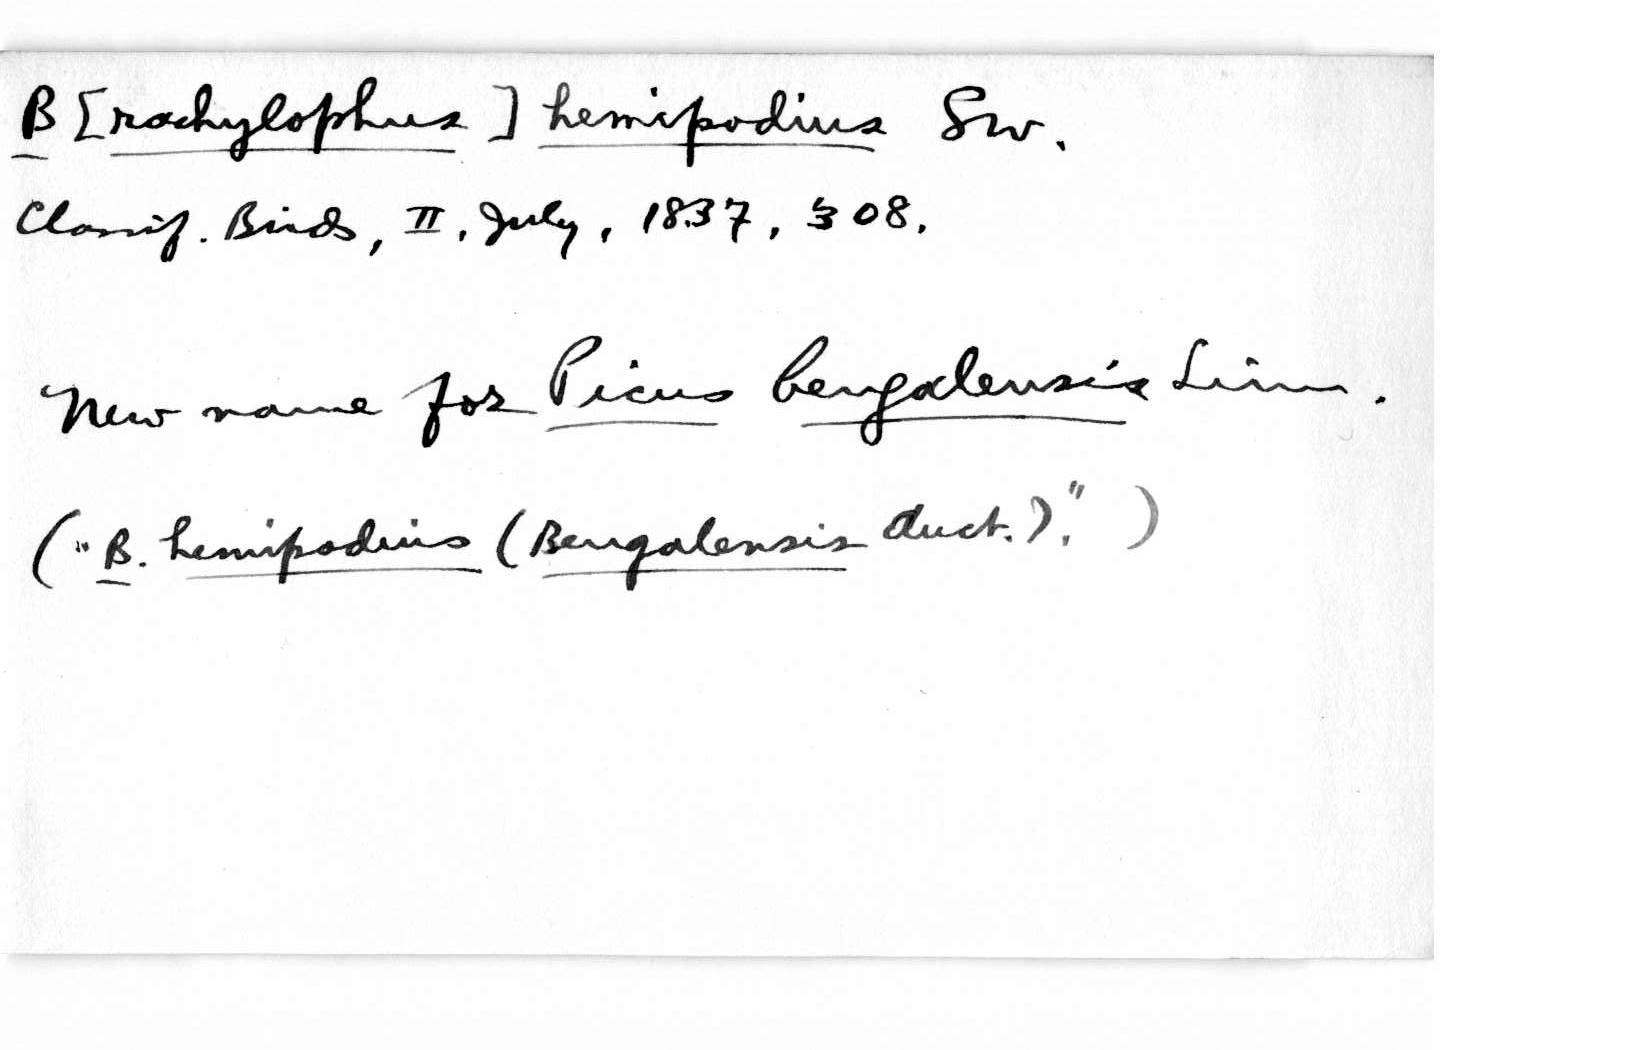 B[rachylophus] hemipodius Sw.
Classif. Birds, II, July, 1837, 308.
New name for Picus bengalensis Linn.
("B. hemipodius (Bengalensis Auct.)." )